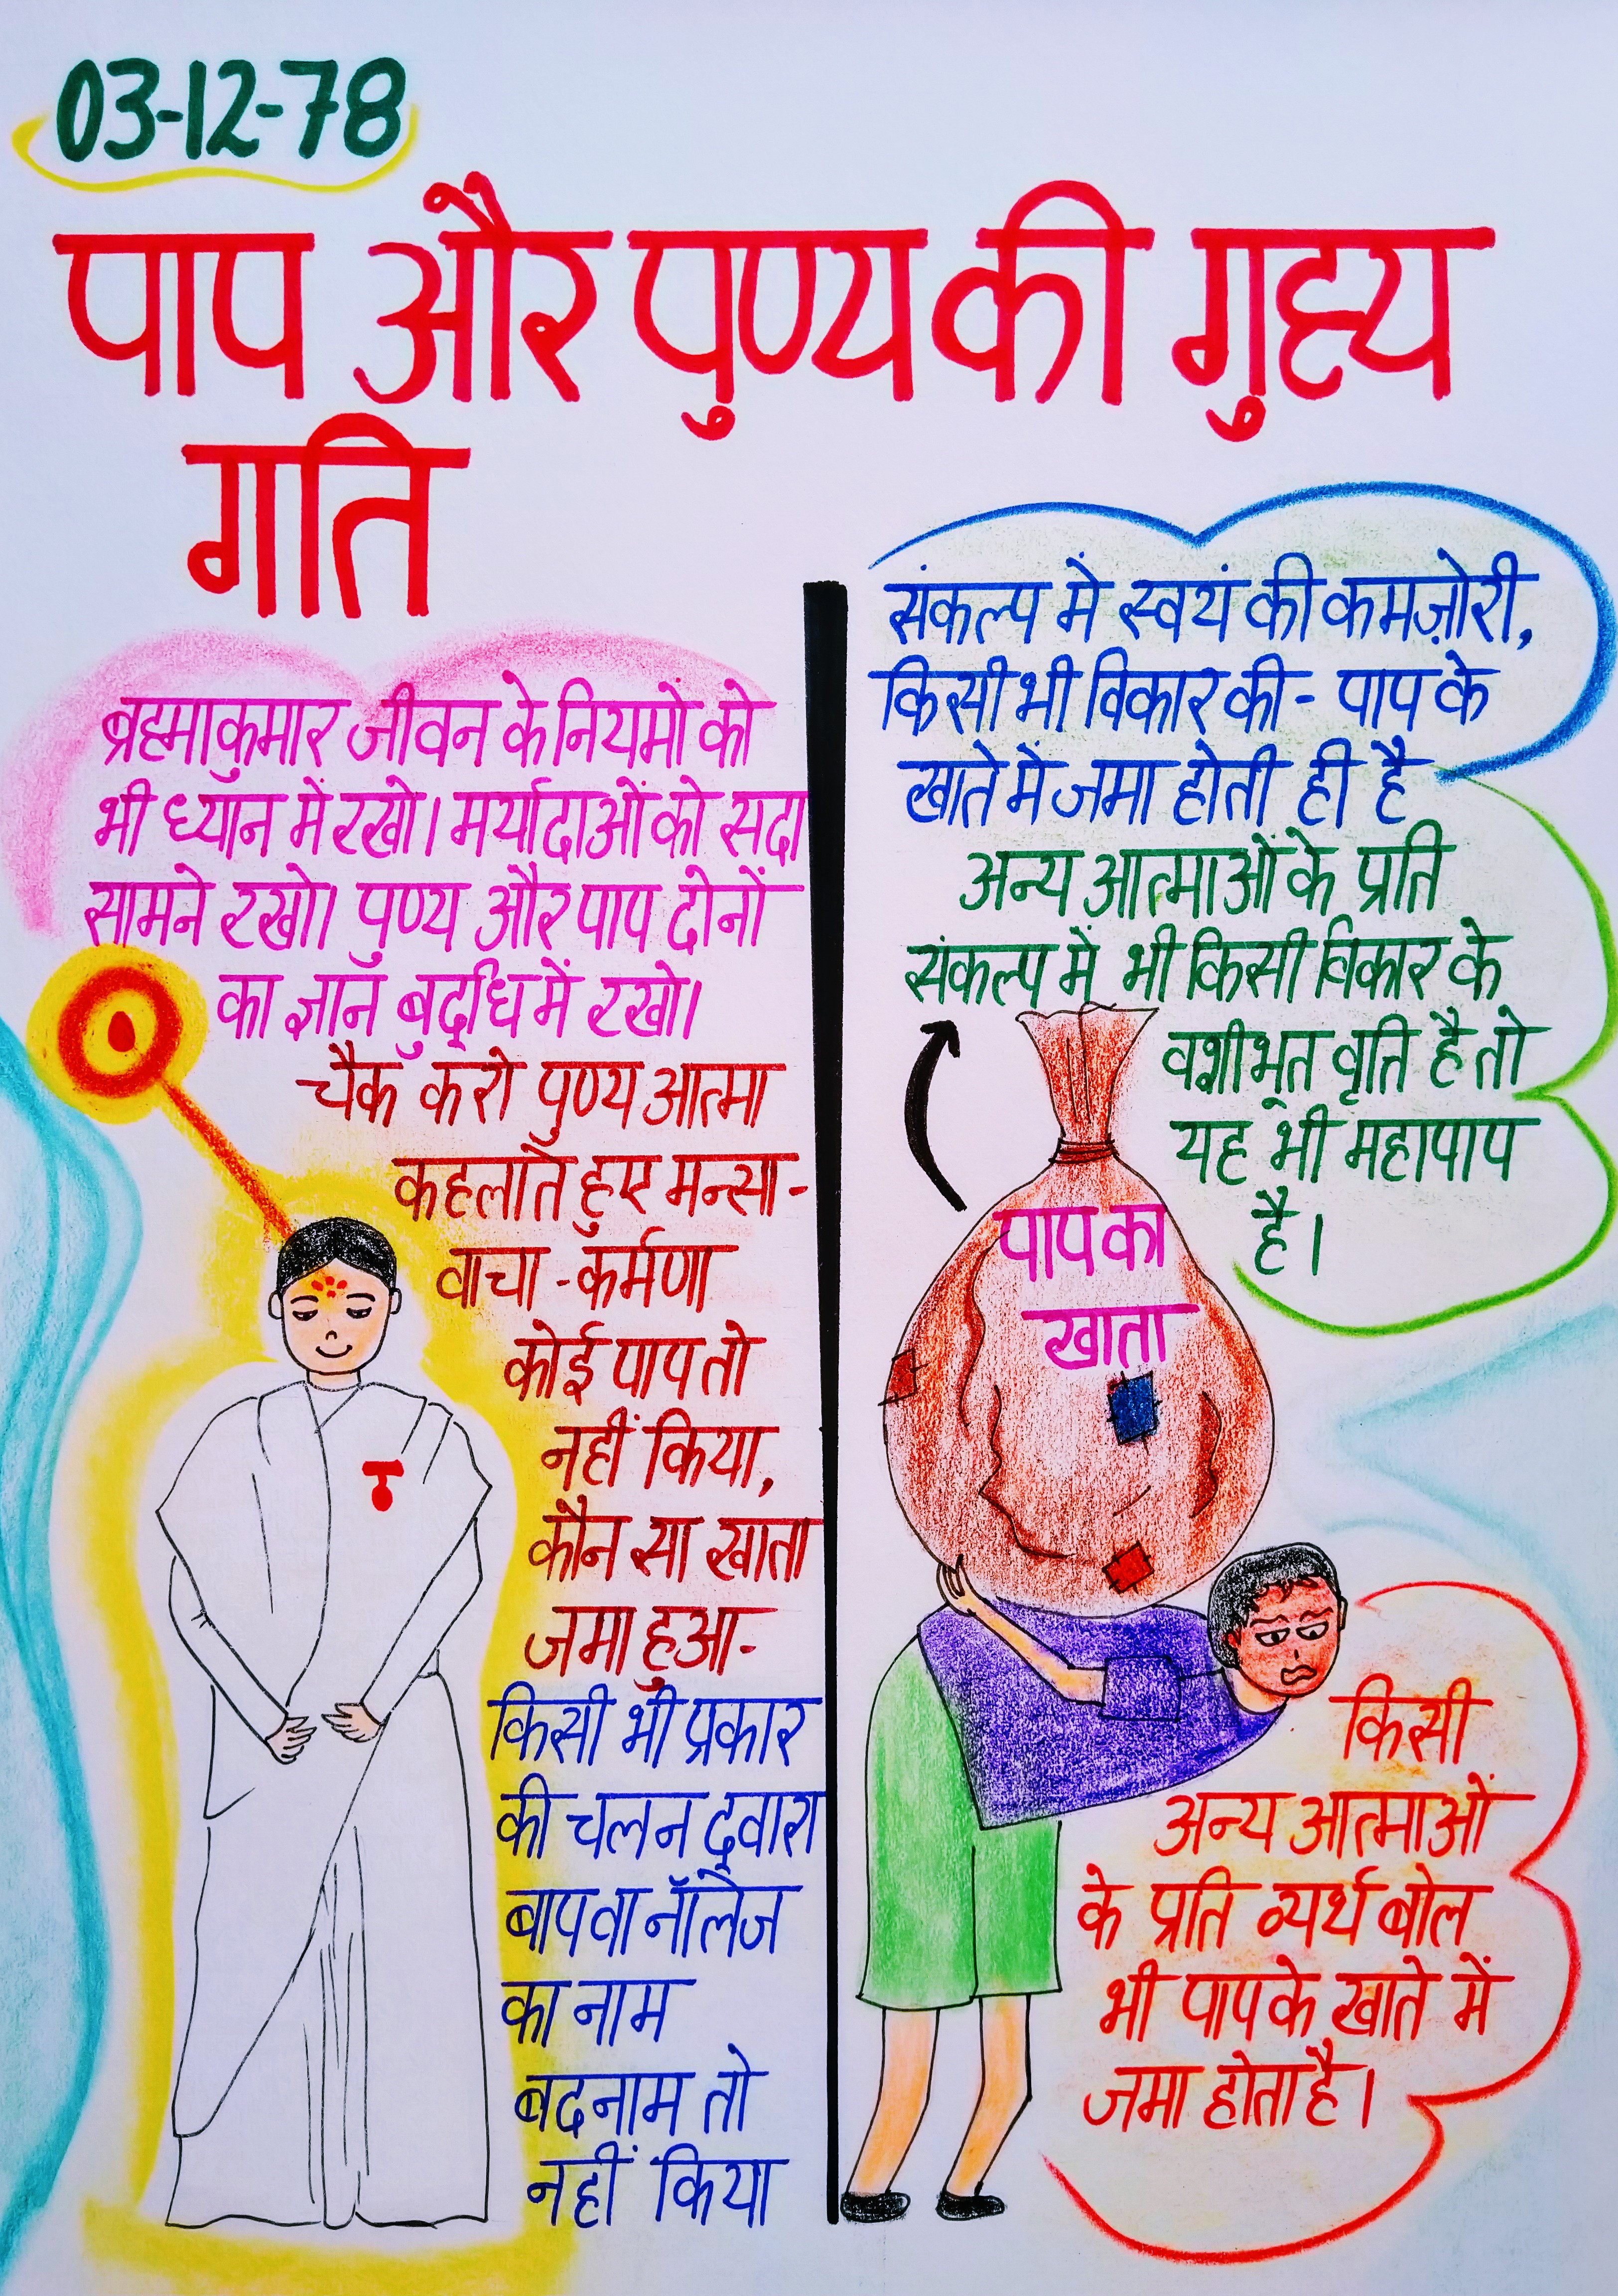 03-12-78
पाप और पुण्य की गुह्य
गति
ब्रह्माकुमार जीवन के नियमों को
भी ध्यान में रखो। मर्यादाओं को सदा
सामने रखो। पुण्य और पाप दोनों
का ज्ञान बुद्धि में रखो।
चैक करो पुण्य आत्मा
कहलाते हुए मन्सा-
वाचा-कर्मणा
कोई पाप तो
नहीं किया,
कौन सा खाता
जमा हुआ-
किसी भी प्रकार
की चलन द्वारा
बाप वा नॉलेज
का नाम
बदनाम तो
नहीं किया
संकल्प मे स्वयं की कमज़ोरी,
किसी भी विकार की - पाप के
खाते में जमा होती ही है
अन्य आत्माओं के प्रति
संकल्प में भी किसी विकार के
वशीभूत वृति है तो
यह भी महापाप
है।
पाप का
खाता
किसी
अन्य आत्माओं
के प्रति व्यर्थ बोल
भी पाप के खाते में
जमा होता है।